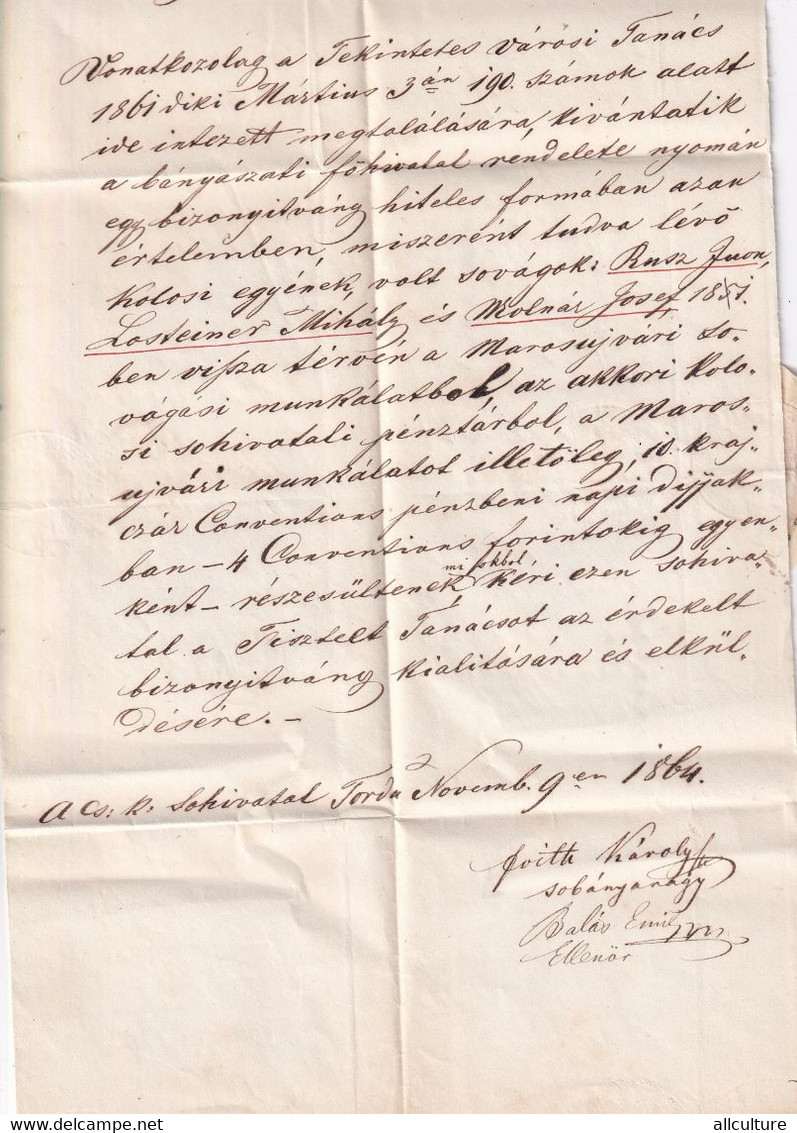 Vonatkozolag a Tekintetes városi Tanács
1861 diki Mártius 3án 190. számok alatt
ide intezett megtalálására, kivántatik
a bányászati főhivatal rendelete nyomán
egy bizonyitvány hiteles formában azon
értelemben, miszerént tudva lévő
Kolosi egyének, volt sovágok: Rusz Juon,
Losteiner Mihály és Molnár Josef, 1851.
ben vissza térvén a Marosujvári So-
vágási munkálatbol, az akkori Kolo-
si sohivatali pénztárbol, a Maros-
ujvári munkálatot illetőleg, is kraj-
czár Conventions pénzbeni napi dijjak-
ban – 4 Conventions forintokig egyen-
ként – részesültenek, mi okbol Kéri ezen sohiva-
tal a Tisztelt Tanácsot az érdekelt
bizonyitvány kialitására és elkül-
désére. –
A cs: k: Sohivatal Torda Novemb. 9en 1864.
Károly
sobányanagy
Balás Emil
Ellenőr
allculture
delcampe.net